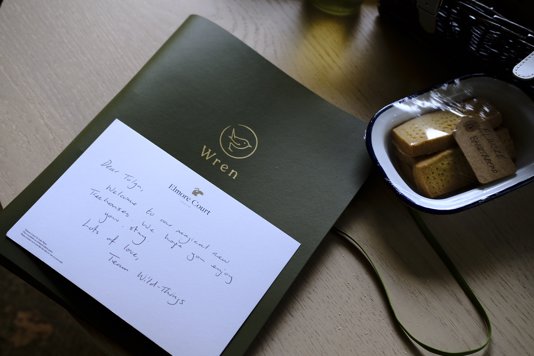 Wren
Elmore Court
Dear Tolga,
Welcome to our magical new
Treehouses. We hope you enjoy
your stay
Lots of love,
Team Wild-Things